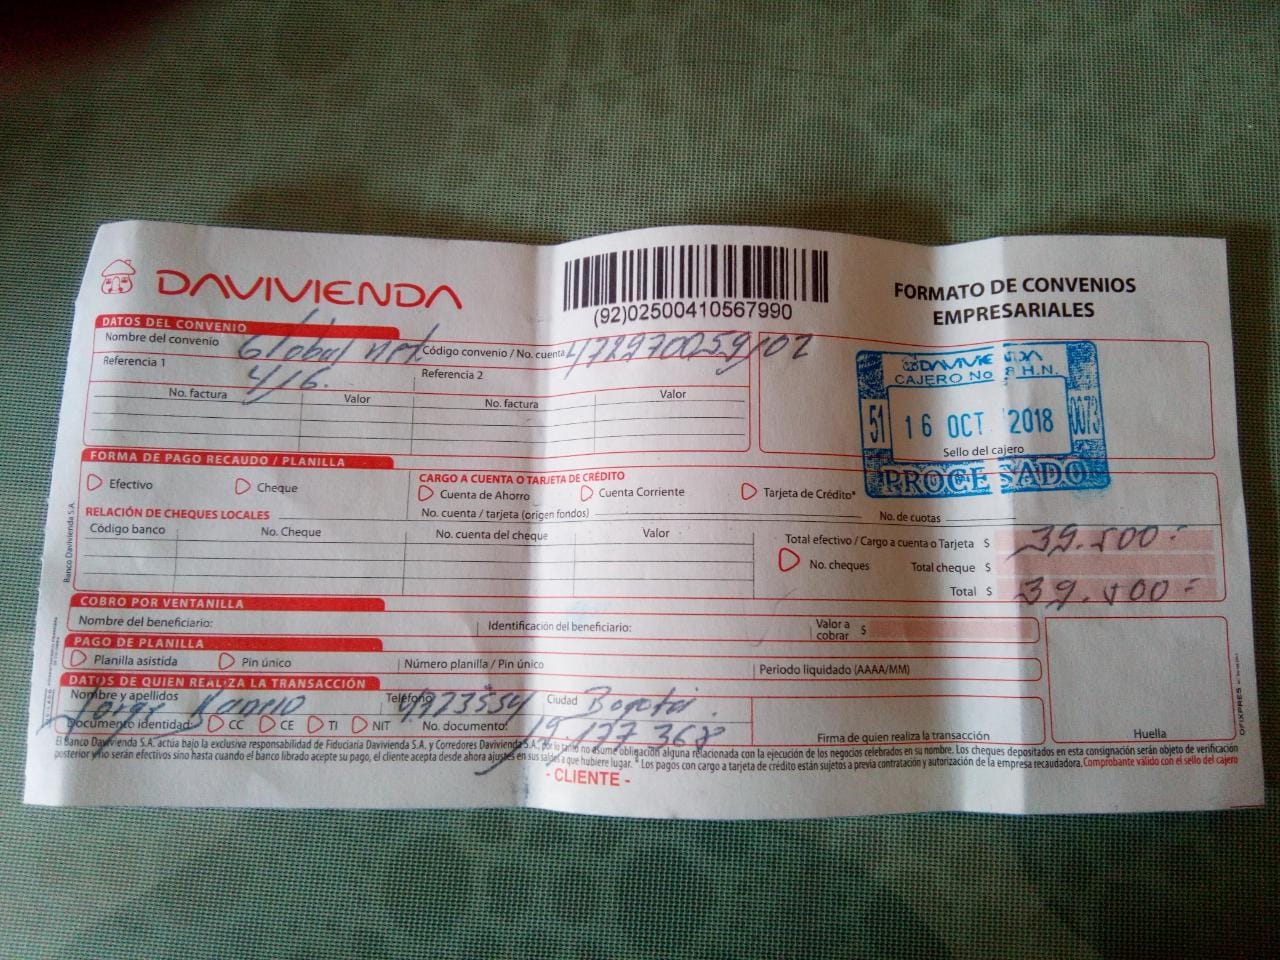 DAVIVIENDA
(92)02500410567990
FORMATO DE CONVENIOS
EMPRESARIALES
DATOS DEL CONVENIO
Nombre del convenio Global net Código convenio / No. cuenta
Referencia 1 416. Referencia 2
No. factura Valor No. factura Valor
DAVIVIENDA
CAJERO No 8 H.N.
51 16 OCT 2018 0073
Sello del cajero
PROCESADO
FORMA DE PAGO RECAUDO / PLANILLA
Efectivo Cheque
CARGO A CUENTA O TARJETA DE CRÉDITO
Cuenta de Ahorro Cuenta Corriente Tarjeta de Crédito*
No. cuenta / tarjeta (origen fondos) No. de cuotas
RELACIÓN DE CHEQUES LOCALES
Código banco No. Cheque No. cuenta del cheque Valor
Total efectivo / Cargo a cuenta o Tarjeta $ 39.500.-
No. cheques Total cheque $
Total $ 39.500.-
COBRO POR VENTANILLA
Nombre del beneficiario: Identificación del beneficiario: Valor a cobrar $
PAGO DE PLANILLA
Planilla asistida Pin único Número planilla / Pin único Periodo liquidado (AAAA/MM)
DATOS DE QUIEN REALIZA LA TRANSACCIÓN
Nombre y apellidos Jorge Teléfono Ciudad Bogotá.
Documento identidad: CC CE TI NIT No. documento: 19 177 368
Firma de quien realiza la transacción Huella
El Banco Davivienda S.A. actúa bajo la exclusiva responsabilidad de Fiduciaria Davivienda S.A. y Corredores Davivienda S.A., por lo tanto no asume obligación alguna relacionada con la ejecución de los negocios celebrados en su nombre. Los cheques depositados en esta consignación serán objeto de verificación
posterior y no serán efectivos sino hasta cuando el banco librado acepte su pago, el cliente acepta desde ahora ajustes en sus saldos a que hubiere lugar. * Los pagos con cargo a tarjeta de crédito están sujetos a previa contratación y autorización de la empresa recaudadora. Comprobante válido con el sello del cajero
- CLIENTE -
Banco Davivienda S.A.
OFIXPRES